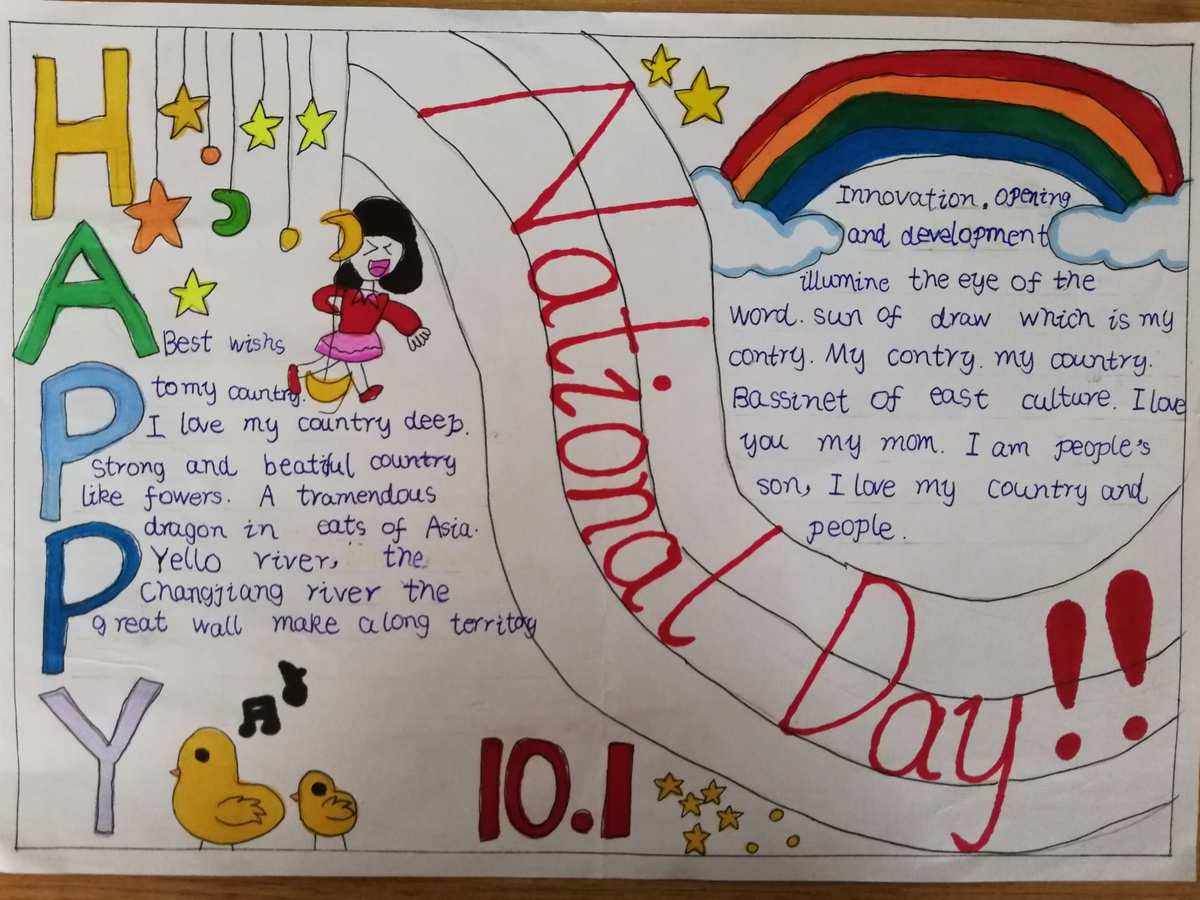 HAPPY
National Day!!
Best wishs
to my country.
I love my country deep.
Strong and beatiful country
like fowers. A tramendous
dragon in eats of Asia.
Yello river, the
Changjiang river the
great wall make along territoy
10.1
Innovation, opening
and development
illumine the eye of the
word. sun of draw which is my
contry. My contry. my country.
Bassinet of east culture. I love
you my mom. I am people's
son, I love my country and
people.